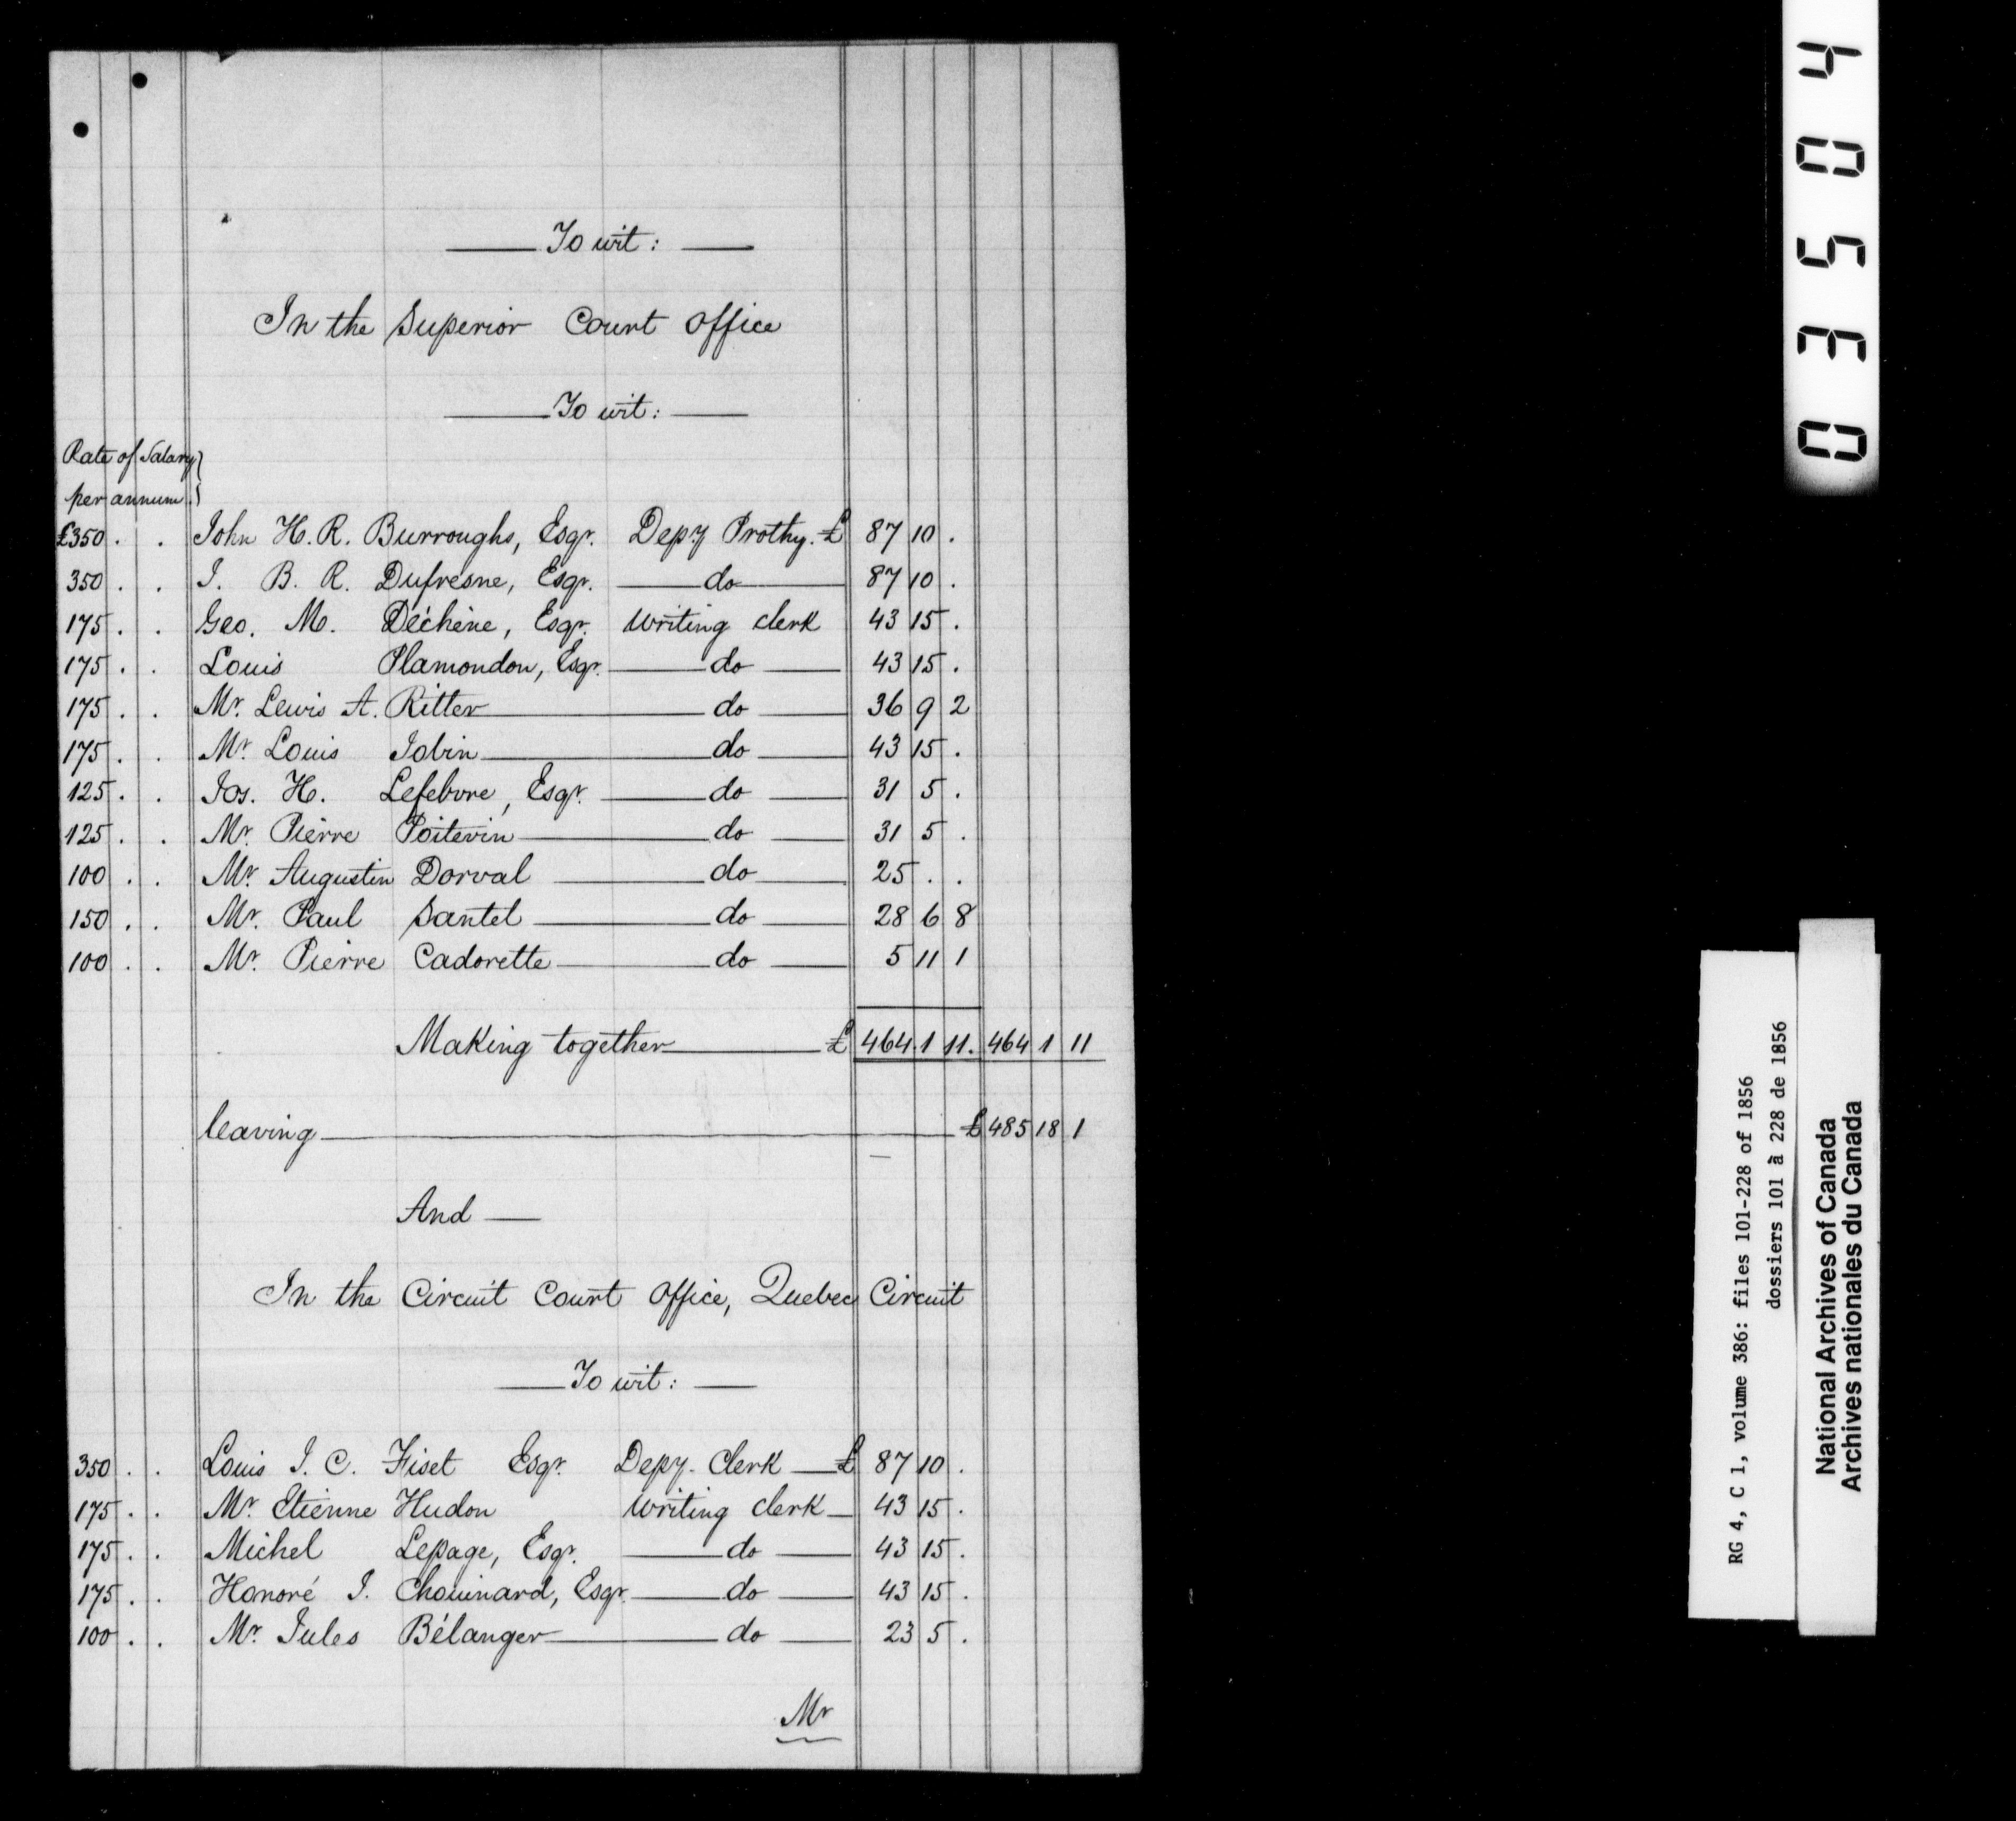 To wit:
In the Superior Court Office
To wit:
Rate of Salary
per annum.
£350 . . John H. R. Burroughs, Esqr. Depy Prothy. £ 87 10 .
350 . . J. B. R. Dufresne, Esqr. do 87 10 .
175 . . Geo. M. Déchène, Esqr. Writing clerk 43 15 .
175 . . Louis Plamondon, Esqr. do 43 15 .
175 . . Mr. Lewis A. Ritter do 36 9 2
175 . . Mr. Louis Jobin do 43 15 .
125 . . Jos. H. Lefebvre, Esqr. do 31 5 .
125 . . Mr. Pierre Poitevin do 31 5 .
100 . . Mr. Augustin Dorval do 25 . .
150 . . Mr. Paul Santel do 28 6 8
100 . . Mr. Pierre Cadorette do 5 11 1
Making together £ 464. 1 11. 464 1 11
leaving £ 485 18 1
And
In the Circuit Court Office, Quebec Circuit
To wit:
350 . . Louis J. C. Fiset Esqr. Depy. Clerk £ 87 10 .
175 . . Mr. Etienne Hudon Writing clerk 43 15 .
175 . . Michel Lepage, Esqr. do 43 15 .
175 . . Honoré J. Chouinard, Esqr. do 43 15 .
100 . . Mr. Jules Bélanger do 23 5 .
Mr
03504
RG 4, C 1, volume 386: files 101-228 of 1856
dossiers 101 à 228 de 1856
National Archives of Canada
Archives nationales du Canada